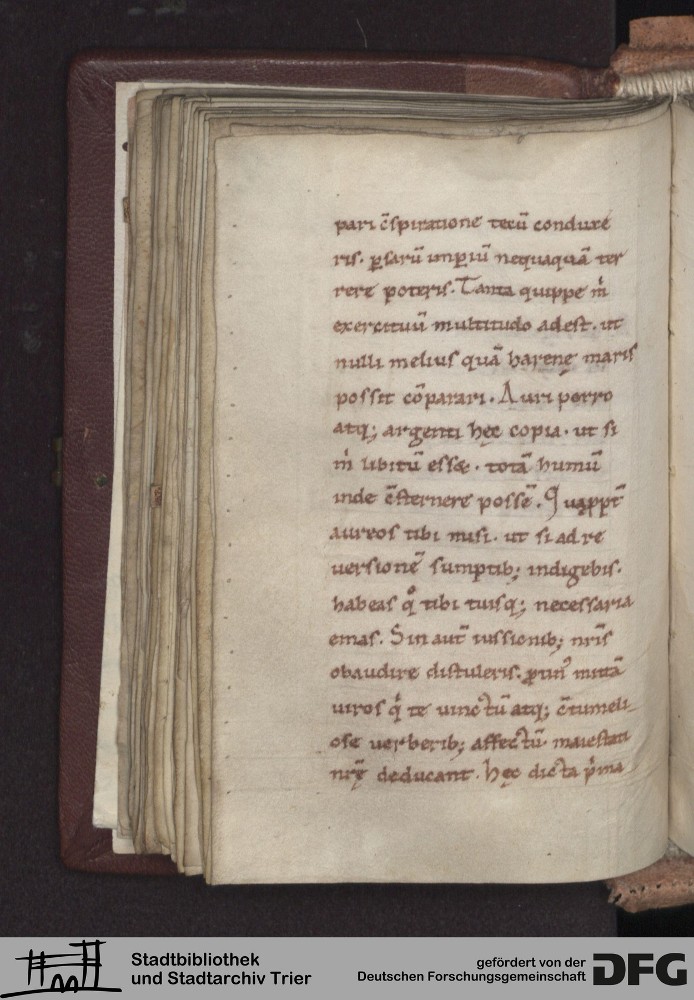 pari c̄spiratione tecū conduxe
ris. ꝑsarū imꝑiū nequaquā ter
rere poteris. Tanta quippe m̊
exercituū multitudo adest. ut
nulli melius quā harenę maris
possit cōparari. Auri porro
atq; argenti hęc copia. ut si
m̊ libitū esset. totā humū
inde c̄sternere possē.
aureos tibi misi. ut si ad re
uersionē sumptib; indigebis.
habeas q̊ tibi tuisq; necessaria
emas. Sin aut̄ iussionib; nr̄is
obaudire distuleris. mittā
uiros q̊ te uinctū atq; c̄tumeli
ose uerberib; affectū maiestati
nr̄ę deducant. hęc dicta p̊ma
Stadtbibliothek
und Stadtarchiv Trier
gefördert von der
Deutschen Forschungsgemeinschaft
DFG